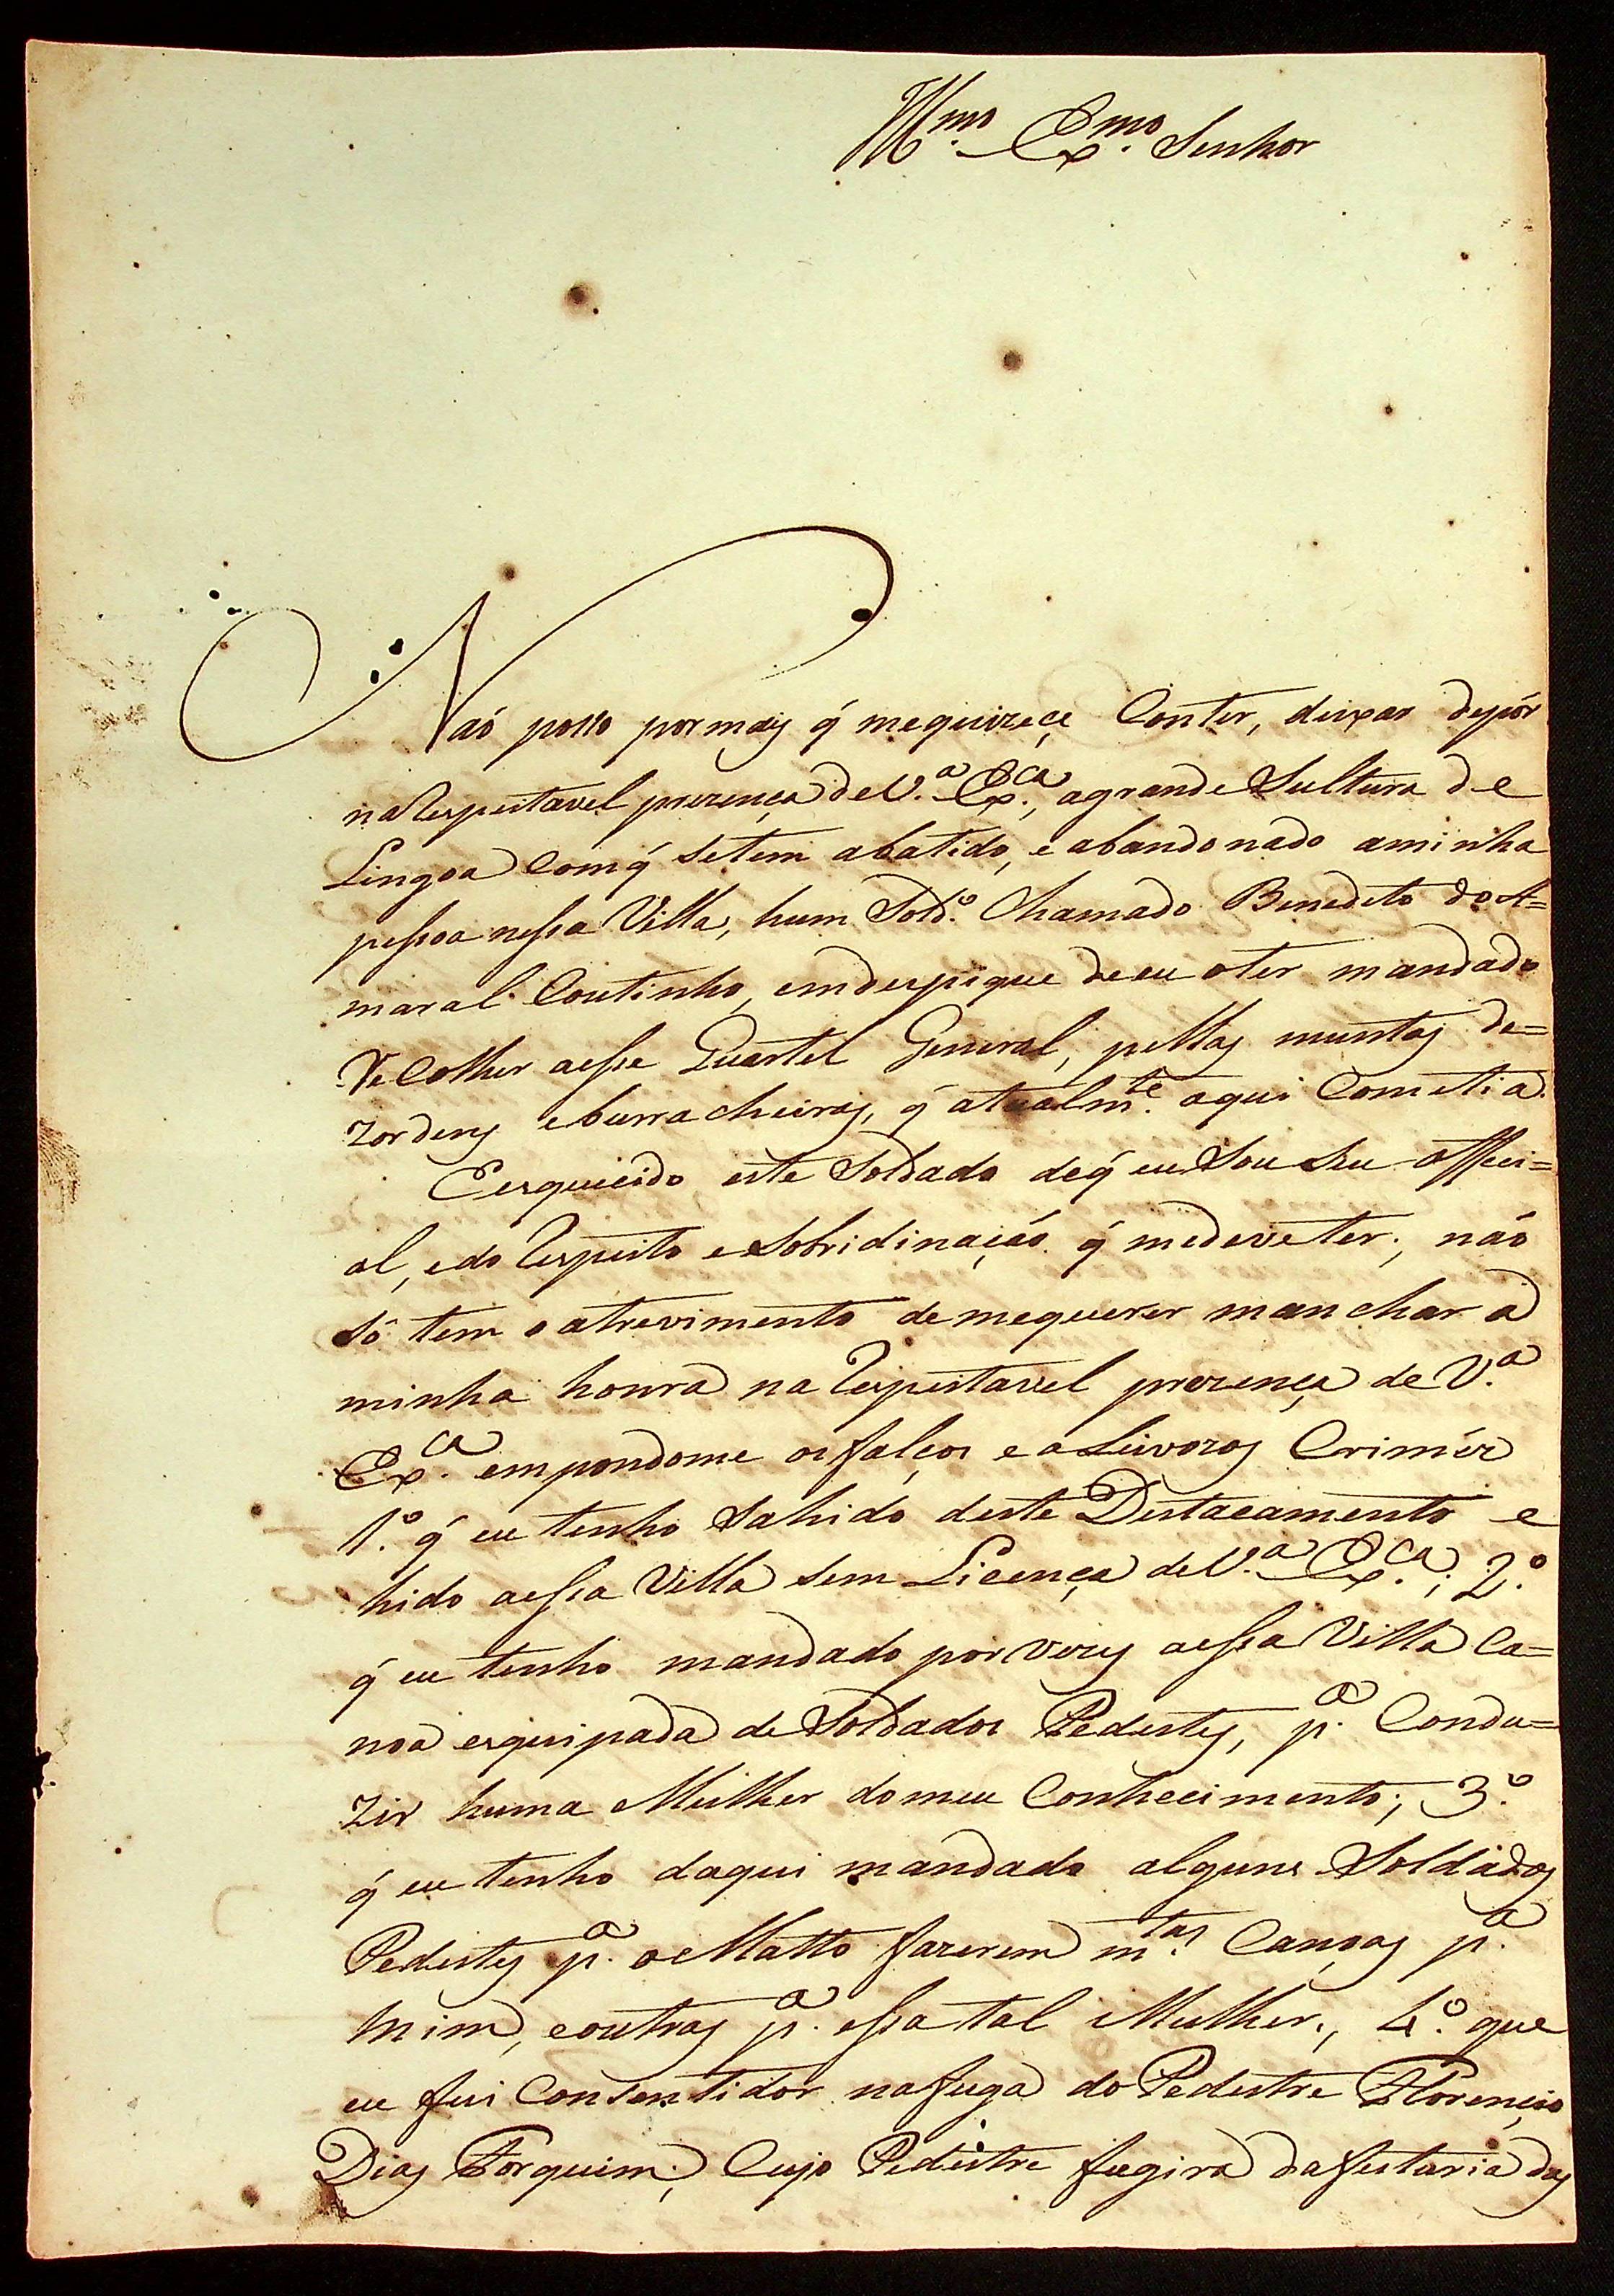 Ill.mo Ex.mo Senhor
Naõ posso por mais q̃ mequizeçe Conter, deixar depôr
na Respeitavel prezença de V.a Ex.ca, agrande Sultura de
Lingoa Com q̃ setem abatido, e abandonado aminha
pessoa nessa Villa, hum Sold.o Chamado Benedito do A=
maral Coutinho, em despique de eu oter mandado
ReColher aesse Quartel General, pellas muntas de=
zordens eburracheiras, q̃ atualm.te aqui Cometia.
Eesquicido este Soldado deq̃ eu Sou Seu offici=
al, edo Respeito e Sobridinação q̃ medeveter; não
Só tem o atrevimento demequerer manchar a
minha honra na Respeitavel prezença de V.a
Ex.ca empondome os falços e aleivozos Crimes
1.o q̃ eu tenho Sahido deste Destacamento e
hido aessa Villa sem Licença de V.a Ex.ca; 2.o
q̃ eu tenho mandado por vezes aessa Villa Ca=
noa esquipada de Soldados Pedestes, p.a Condu=
zir huma Mulher do meu Conhecimento; 3.o
q̃ eu tenho daqui mandado alguns Soldados
Pedestes p.a o Matto fazerem m.tas Canoas p.a
mim, e outras p.a essa tal Mulher; 4.o que
eu fui Consentidor na fuga do Pedestre Florençio
Dias Forquim; Cujo Pedestre fugira da feitoria das